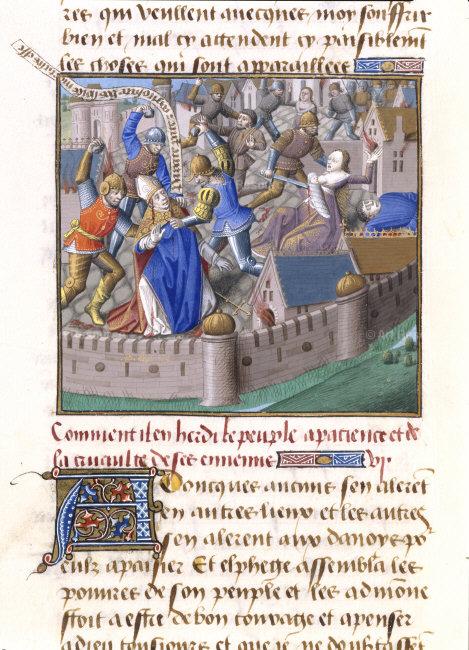 res qui veullent avecques moy souffrir
bien et mal cy attendent cy paisiblement
les choses qui sont apparaillees
Comment il en hardi le peuple a pacience et de
la cruculte de ses ennemis vj.
Doncques aucuns sen alerent
en autres lieux et les autres
sen alerent aux danoys po
eulx apaisier Et elphege assembla les
pouures de son peuple et les admone
stoit a estre de bon couvage et a penser
a dieu tousiours et que je ne doubtassent